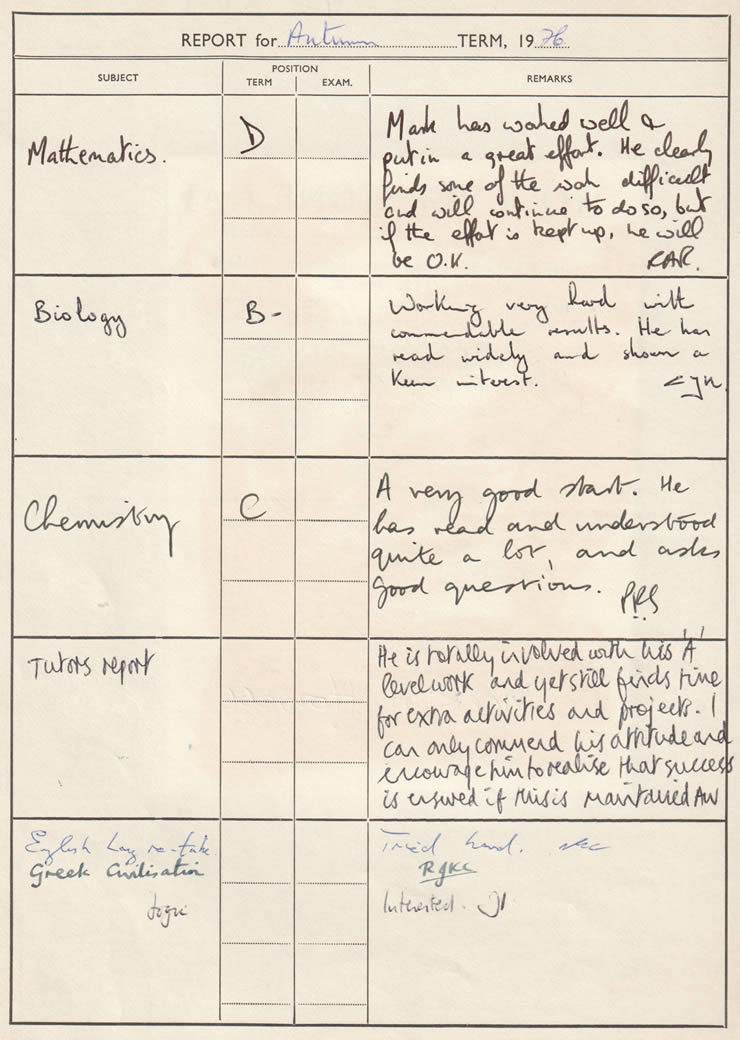 REPORT for Autumn TERM, 1976
SUBJECT
POSITION
TERM EXAM.
REMARKS
Mathematics.
D
Mark has worked well &
put in a great effort. He clearly
finds some of the work difficult
and will continue to do so, but
if the effort is kept up, he will
be O.K. RAR.
Biology
B-
Working very hard with
commendable results. He has
read widely and shown a
keen interest.
Chemistry
C
A very good start. He
has read and understood
quite a lot, and asks
good questions.
PRS
Tutors report
He is totally involved with his 'A'
level work and yet still finds time
for extra activities and projects. I
can only commend his attitude and
encourage him to realise that success
is ensured if this is maintained AW
English Lang re-take.
Tried hard.
Greek Civilisation
RJKC
Interested.